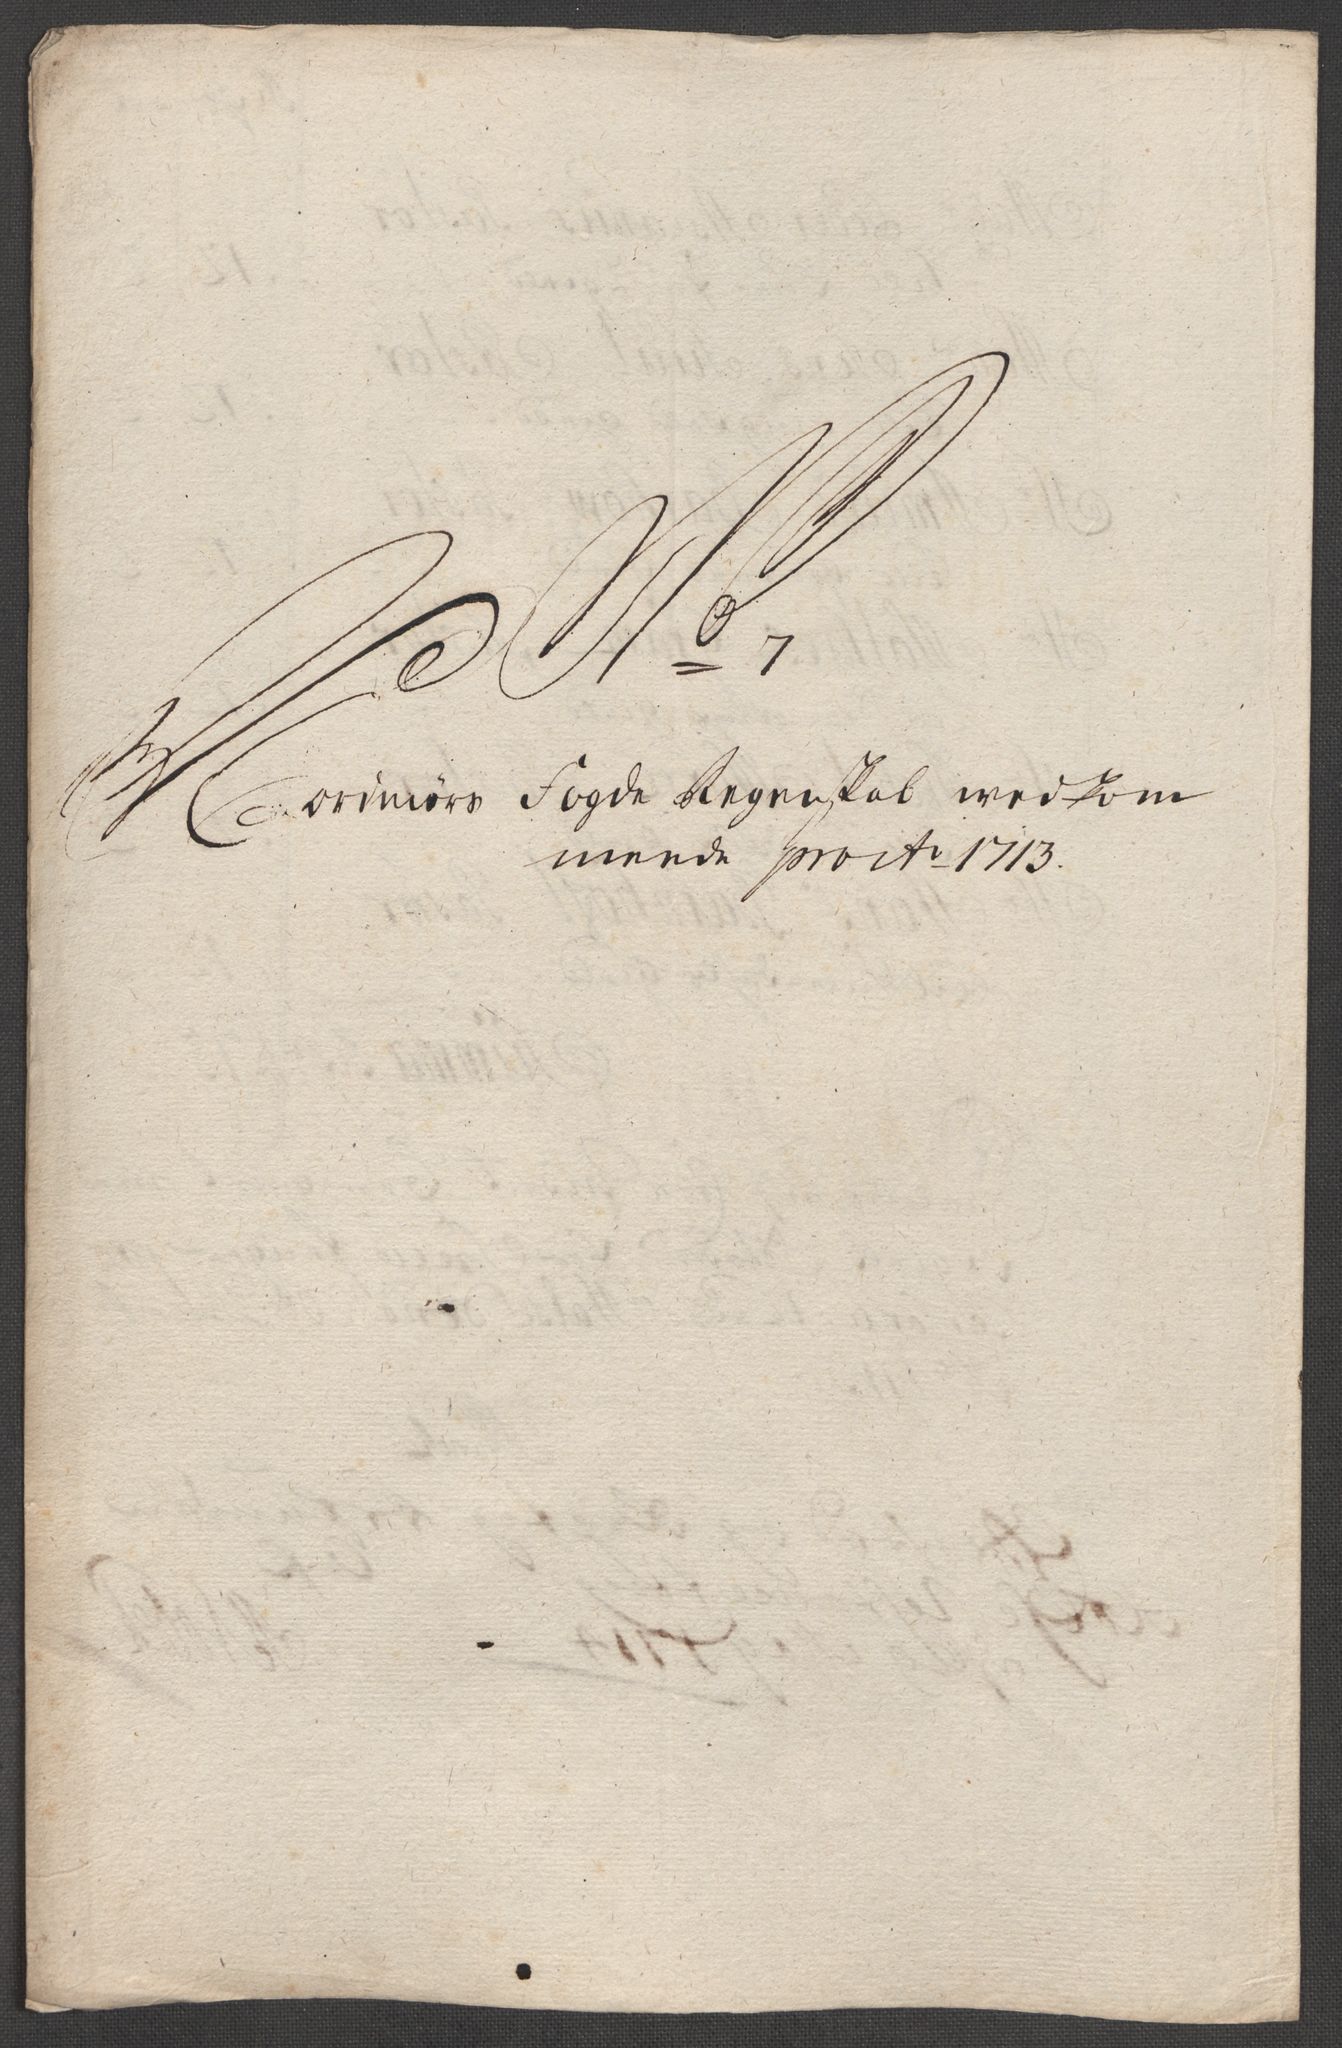 No 7
Nordmörs Fogde Regenskab wedkom
mende pro Ao 1713.